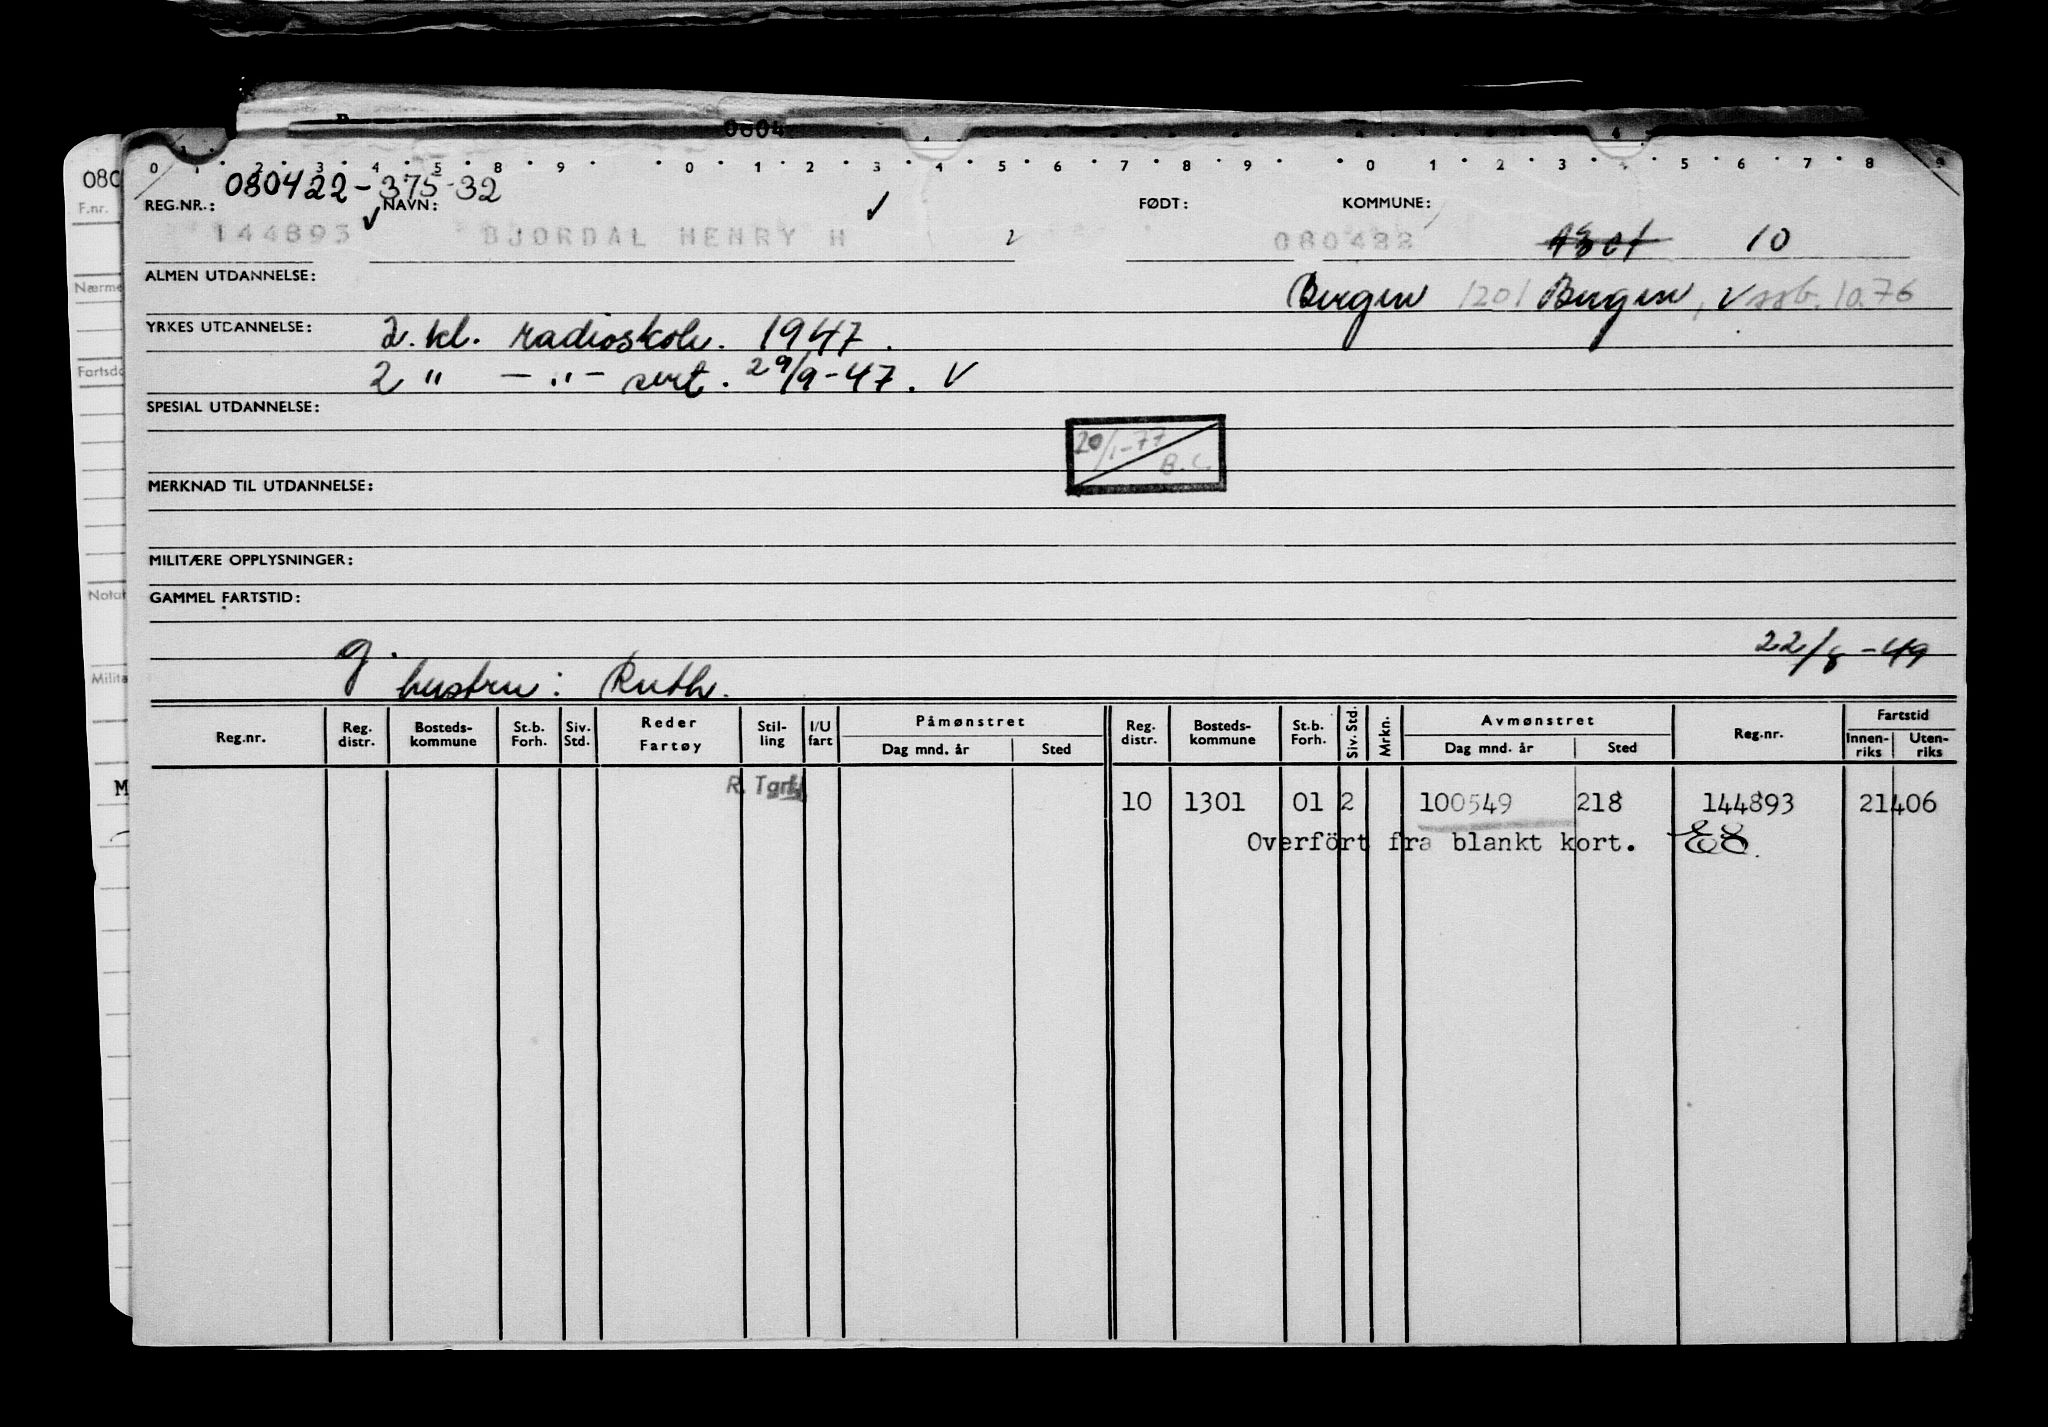 0804
0 1 2 3 4 5 8 9 0 1 2 3 4 5 6 7 8 9 0 1 2 3 4 5 6 7 8 9
080
080422-375-32
F.nr.
REG.NR.: NAVN: FØDT: KOMMUNE:
144893 BJORDAL HENRY H 080422 1301 10
ALMEN UTDANNELSE:
Nærme
Bergen 1201 Bergen, V ssb. 10.76
YRKES UTDANNELSE: 2. kl. radioskole. 1947.
Fartsdo
2 " - " - sert. 29/9-47. V
SPESIAL UTDANNELSE:
20/1-77
B.C.
MERKNAD TIL UTDANNELSE:
MILITÆRE OPPLYSNINGER:
Notat
GAMMEL FARTSTID:
g. 22/8-49
Milita
hustru: Ruth.
Reg.nr. Reg. distr. Bosteds-kommune St.b. Forh. Siv. Std. Reder Fartøy Stil-ling I/U fart Påmønstret Dag mnd. år Sted Reg. distr. Bosteds-kommune St.b. Forh. Siv. Std. Mrkn. Avmønstret Dag mnd. år Sted Reg.nr. Fartstid Innen-riks Uten-riks
M
R. Tgrf.
10 1301 01 2 100549 218 144893 21406
Overfört fra blankt kort.